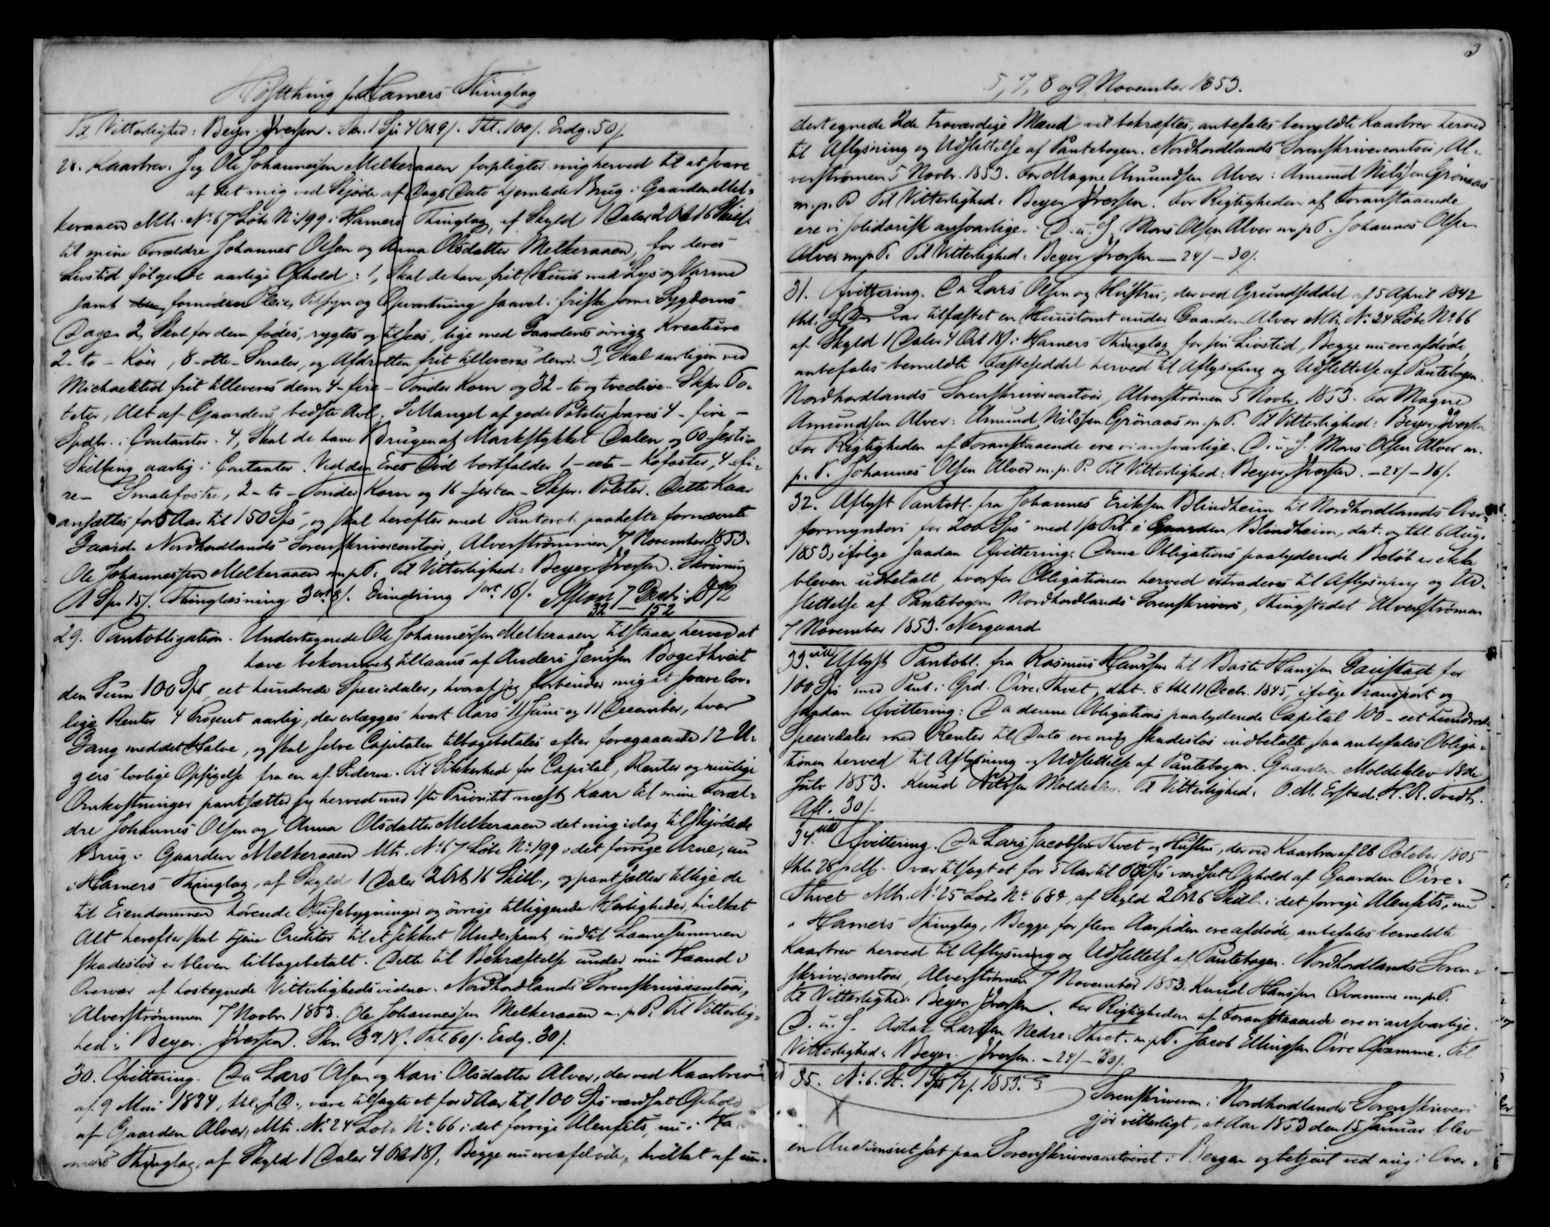 Høstthing for Hamers Thinglag
Til Vitterlighed: Beyer. Iversen. Skr. 1 Sp 4 Ort 9/. Thl. 100/. Erdg. 50/.
28. Kaarbrev. Jeg Ole Johannessen Melkeraaen forpligter mig herved til at svare
af det mig ved Skjøde af Dags Dato hjemlede Brug i Gaarden Mel-
keraaen Mtr. No 67 Løbe No 199 i Hamers Thinglag, af Skyld 1 Daler 2 Ort 16 Skil.
til mine Forældre Johannes Olsen og Anna Olsdatter Melkeraaen, for deres
Livstid følgende aarlige Ophold: 1, Skal de have frit Huus med Lys og Varme
samt fornøden Pleie, Tilsyn og Opvartning saavel i friske som i Sygdoms
Dage. 2, Skal for dem fodes, røgtes og tilsees, lige med Gaardens øvrige Kreature
2 - to - Kiør, 8 - otte - Smaler, og Afdrotten frit tilleveres dem. 3, Skal aarligen ved
Michaelitid frit tilleveres dem 4 - fire - Tønder Korn og 32 - to og tredive - Skpr. Po-
teter, Alt af Gaardens bedste Avl. I Mangel af gode Poteter svares 4 - fire -
Spdlr. i Contanter. 4, Skal de have Brugen af Markstykket Dalen og 60 - sextie
Skilling aarlig i Contanter. Ved den Enes Død bortfalder 1 - een - Kofoster, 4 - fi-
re - Smalefostre, 2 - to - Tønder Korn og 16 - sexten - Skpr. Poteter. Dette Kaar
ansættes for 5 Aar til 150 Spd, og skal herefter med Panteret paahefte fornævnte
Gaard. Nordhordlands Sorenskrivercontoir, Alverstrømmen, 7 November 1853.
Ole Johannessen Melkeraaen m.p.P. Til Vitterlighed: Beyer. Iversen. Skrivning
1 Spd 15/. Thinglæsning 3 ort 8/. Erindring 1 ort 16/.
29. Pantobligation. Undertegnede Ole Johannessen Melkeraaen tilstaaer herved at
have bekommet tillaans af Anders Jenssen Bogethveit
den Sum 100 Spd eet hundrede Speciedaler, hvoraf jeg forbinder mig at svare lov-
lige Renter 4 Procent aarlig, der erlægges hvert Aars 11 Juni og 11 December, hver
Gang med det Halve, og skal selve Capitalen tilbagebetales efter foregaaende 12 U-
gers lovlige Opsigelse fra en af Siderne. Til Sikkerhed for Capital, Renter og mulige
Omkostninger pantsætter jeg herved med 1ste Prioritet næst Kaar til mine Foræl-
dre Johannes Olsen og Anna Olsdatter Melkeraaen det mig idag tilskjødede
Brug i Gaarden Melkeraaen Mtr. No 67 Løbe No 199 i det forrige Arne, nu
i Hamers Thinglag, af Skyld 1 Daler 2 Ort 16 Skill., og pantsætter tillige de
til Eiendommen hørende Huusebygninger og øvrige tilliggende Herligheder, hvilket
Alt herefter skal tjene Creditor til et sikkert Underpant, indtil Laanesummen
skadesløs er bleven tilbagebetalt. Dette til Bekræftelse under min Haand i
Overvær af hostegnede Vitterlighedsvidner. Nordhordlands Sorenskrivercontoir,
Alverstrømmen 7 Novbr. 1853. Ole Johannessen Melkeraaen m.p.P. Til Vitterlig-
hed: Beyer. Iversen. Skr. 3 ort 18/. Thl. 60/. Erdg. 30/.
30. Qvittering. Da Lars Olsen og Kari Olsdatter Alver, der ved Kaarbrev
af 9 Mai 1834, thl. s. D., vare tilsagte et for 5 Aar til 100 Spd værdsat Ophold
af Gaarden Alver, Mtr. No 24 Løbe No 66 i det forrige Alenfits, nu i Ha-
mers Thinglag, af Skyld 1 Daler 4 Ort 18/, Begge nu ere afdøde, hvilket af un-
3
5, 7, 8 og 9 November 1853.
dertegnede 2de troværdige Mænd vil bekræftes, anbefales bemeldte Kaarbrev herved
til Aflysning og Udslettelse af Pantebogen. Nordhordlands Sorenskrivercontoir, Al-
verstrømmen 5 Novbr. 1853. For Magne Amundsen Alver: Amund Nilssen Grønaas
m.p.P. Til Vitterlighed: Beyer. Iversen. For Rigtigheden af Foranstaaende
ere vi solidarisk ansvarlige. D. u. S. Mons Olsen Alver m.p.P. Johannes Olsen
Alver m.p.P. Til Vitterlighed: Beyer. Iversen. — 24/ — 30/.
31. Qvittering. Da Lars Olsen og Hustru, der ved Grundseddel af 5 April 1842
thl. s. D. var tilfæstet en Huustomt under Gaarden Alver Mtr. No 24 Løbe No 66
af Skyld 1 Daler 4 Ort 18/ i Hamers Thinglag for sin Livstid, Begge nu ere afdøde
anbefales bemeldte Fæsteseddel herved til Aflysning og Udslettelse af Pantebogen.
Nordhordlands Sorenskrivercontoir, Alverstrømmen 5 Novbr. 1853. For Magne
Amundsen Alver: Amund Nilssen Grønaas m.p.P. Til Vitterlighed: Beyer. Iversen
For Rigtigheden af Foranstaaende ere vi ansvarlige. D. u. S. Mons Olsen Alver m.
p.P. Johannes Olsen Alver m.p.P. Til Vitterlighed: Beyer. Iversen. — 24/ — 16/.
32. Aflyst Pantobl. fra Johannes Eriksen Blindheim til Nordhordlands Over-
formynderi for 200 Spd med 1ste Prt. i Gaarden Blindheim, dat. og thl. 6 Aug.
1853, ifølge saadan Qvittering: Denne Obligations paalydende Beløb er ikke
bleven udbetalt, hvorfor Obligationen herved extraderes til Aflysning og Ud-
slettelse af Pantebogen. Nordhordlands Sorenskriveri, Thingstedet Alverstrømmen
7 November 1853. Nergaard
33. Aflyst Pantobl. fra Rasmus Hanssen til Baste Hanssen Gaustad for
100 Spd med Pant i Grd. Øvre Thvet, dat. 8 thl. 11 Decbr. 1845, ifølge Transport og
saadan Qvittering: Da denne Obligations paalydende Capital 100 - eet hundrede
Speciedaler med Renter til Dato ere mig skadesløs indbetalte, saa anbefales Obliga-
tionen herved til Aflysning og Udslettelse af Pantebogen. Gaarden Moldeklev 18de
1853. Knud Nilssen Moldeklev. Til Vitterlighed: O. M. Erstad. H. R.
Afl. 30/.
34. Qvittering. Da Lars Jacobsen Thvet og Hustru, der ved Kaarbrev af 26 October 1805
thl. 28 var tilsagt et for 5 Aar til Spd værdsat Ophold af Gaarden Øvre-
Thvet Mtr. No 25 Løbe No 684, af Skyld 2 Ort 6 Skill. i det forrige Alenfits, nu
i Hamers Thinglag, Begge for flere Aar siden ere afdøde, anbefales bemeldte
Kaarbrev herved til Aflysning og Udslettelse af Pantebogen. Nordhordlands Soren-
skrivercontoir, Alverstrømmen 7 November 1853. Knud Hanssen Qvamme m.p.P.
Til Vitterlighed: Beyer. Iversen. For Rigtigheden af Foranstaaende ere vi ansvarlige.
D. u. S. Aslak Larssen Nedre Thvet m.p.P. Jacob Ellingsen Øvre Qvamme. Til
Vitterlighed: Beyer. Iversen. — 24/ — 30/.
35. No 6. St. 1 Spd 1853. Sorenskriveren i Nordhordlands Sorenskriveri
gjør vitterligt, at Aar 1853 den 15 Januar blev
en Auctionsret sat paa Sorenskrivercontoiret i Bergen og betjent ved mig i Over-